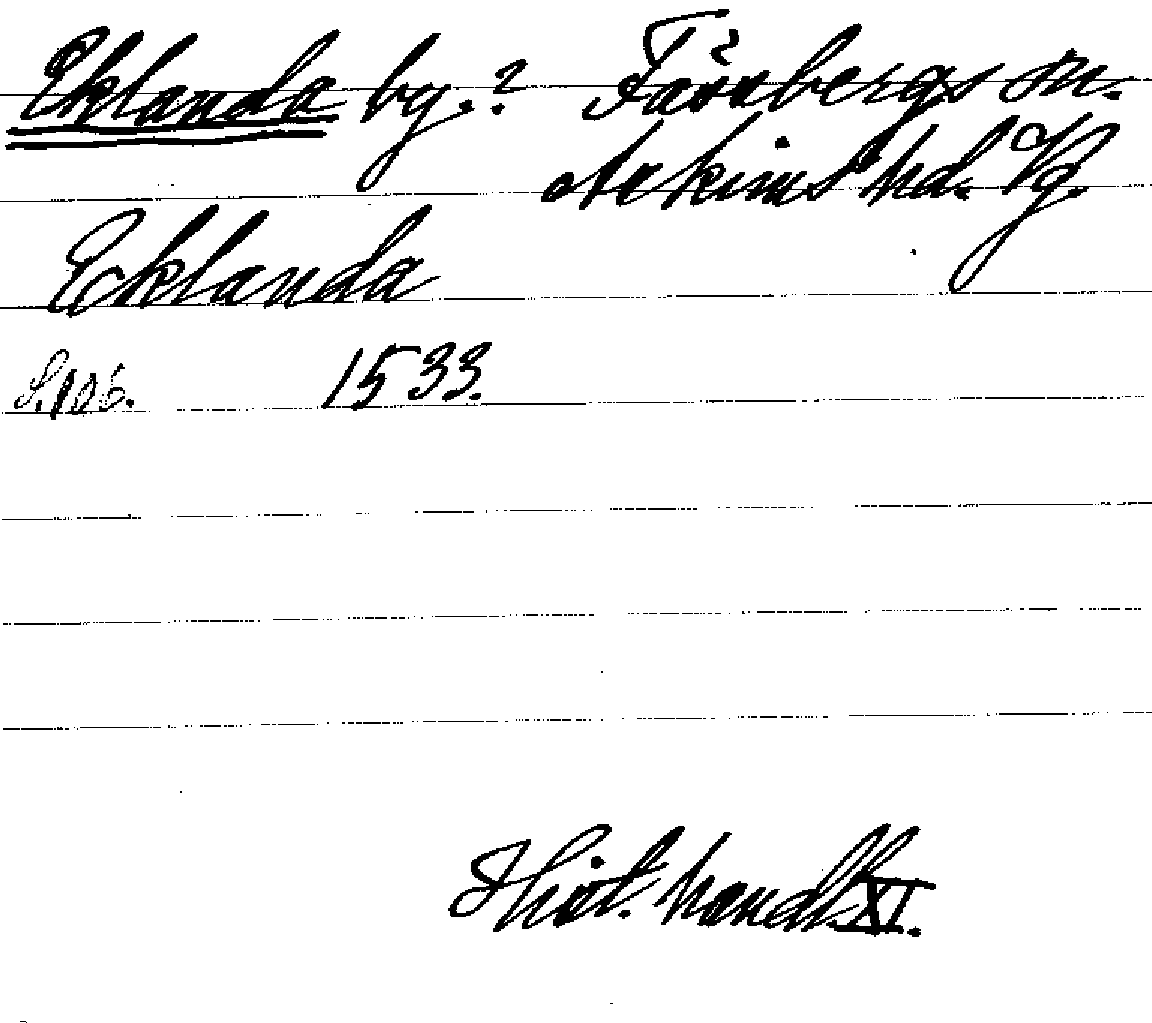 Eklanda by.? Fässbergs sn.
Askims hd. Vg.
Eklanda
S. 106. 1533.
Hist. handl. XI.